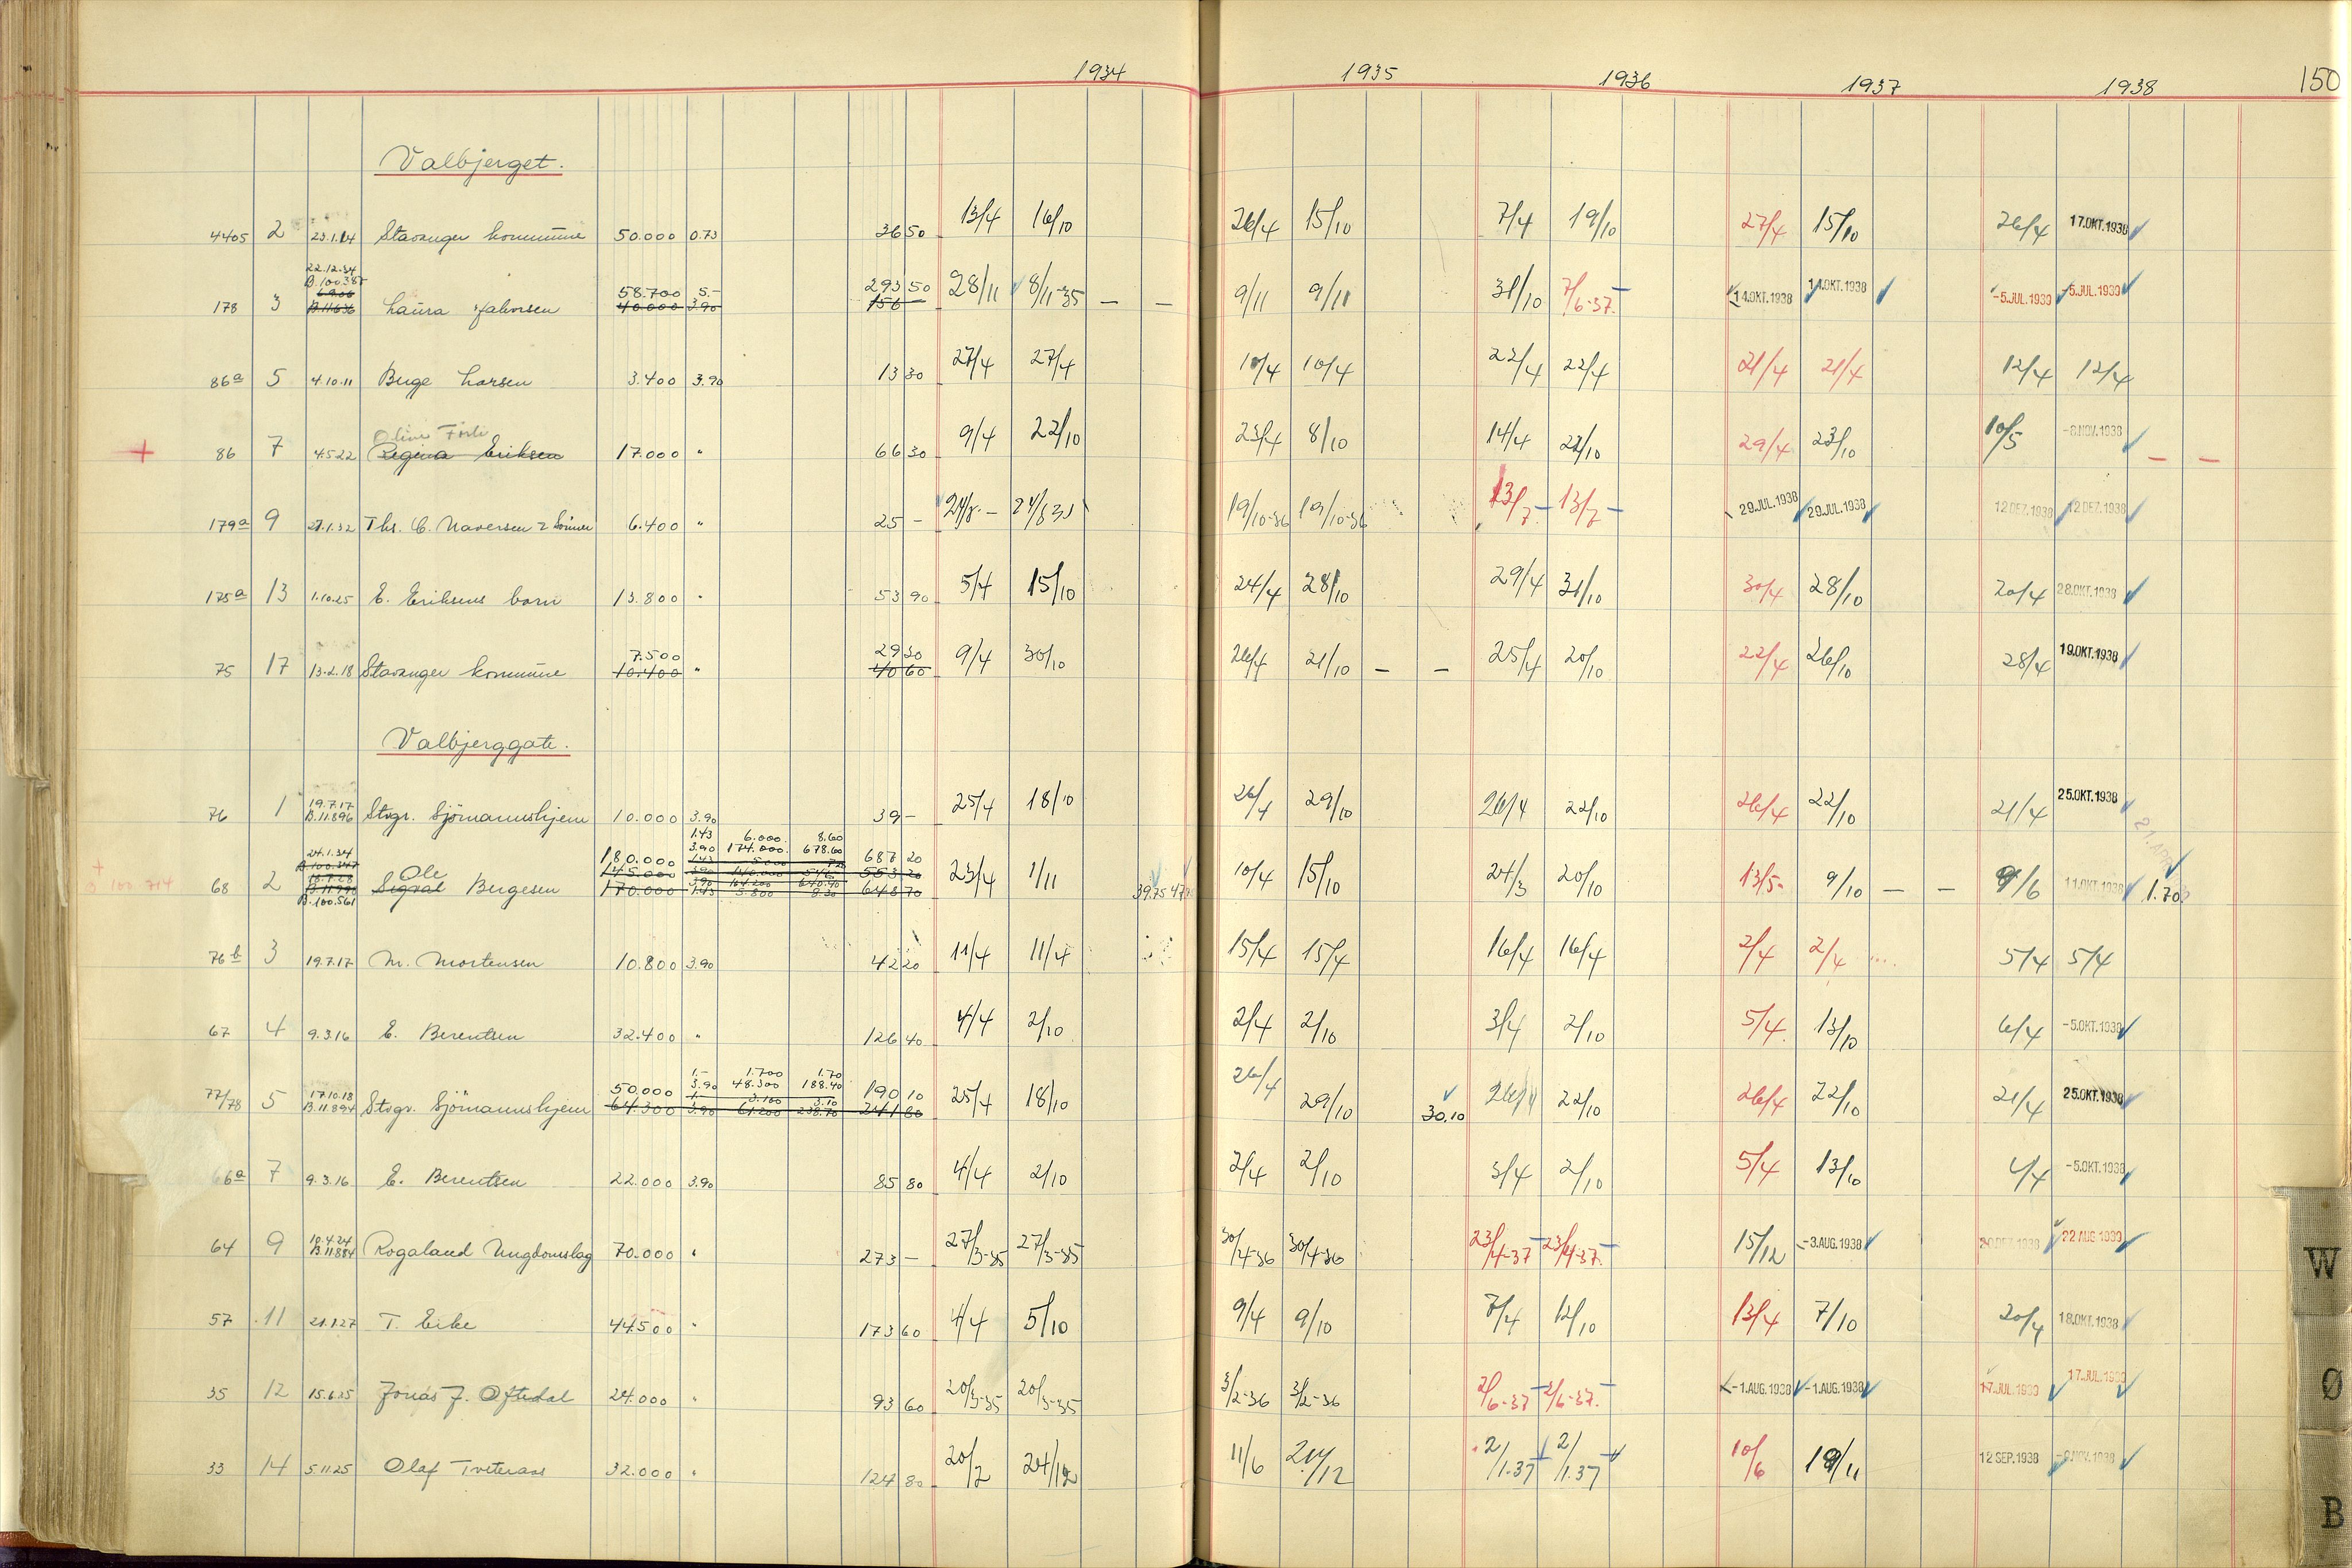 1934 1935 1936 1937 1938 150
Valbjerget.
4405 2 23.1.14 Stavanger kommune 50.000 0.73 36 50 13/4 16/10 26/4 15/10 7/4 19/10 27/4 15/10 26/4 17.OKT.1938
22.12.34
B.100.385
178 3 B.11636 Laura Jakobsen 58.700 5.- 293 50 28/11 8/11-35 — — 9/11 9/11 31/10 7/6-37. 14.OKT.1938 14.OKT.1938 -5.JUL.1939 -5.JUL.1939
40.000 3.90 156 —
86a 5 4.10.11 Berge Larsen 3.400 3.90 13 30 27/4 27/4 10/4 10/4 22/4 22/4 21/4 21/4 12/4 12/4
Oline
+ 86 7 4.5.22 Regina Eriksen 17.000 " 66 30 9/4 22/10 23/4 8/10 14/4 22/10 29/4 23/10 10/5 -8.NOV.1938 — —
179a 9 27.1.32 Ths. C. Naversen & Sönner 6.400 " 25 - 24/8 - 19/10-36 19/10-36 13/7 - 13/7 - 29.JUL.1938 29.JUL.1938 12 DEZ.1938 12 DEZ.1938
175a 13 1.10.25 E. Eriksens barn 13.800 " 53 90 5/4 15/10 24/4 28/10 29/4 31/10 30/4 28/10 20/4 28.OKT.1938
7.500 29 30
75 17 13.2.18 Stavanger kommune 10.400 " 40 60 9/4 30/10 26/4 21/10 — — 25/4 20/10 22/4 26/10 28/4 19.OKT.1938
Valbjerggate.
76 1 19.7.17 B.11.896 Stvgr. Sjömannshjem 10.000 3.90 39 — 25/4 18/10 26/4 29/10 26/4 22/10 26/4 22/10 21/4 25.OKT.1938
1.43 6.000 8.60
24.1.34 180.000 3.90 174.000 678.60 687 20
B.100.347 145.000 1.43 5.000 553 20
+ B 100.714 68 2 B.11.990 Ole Sigval Bergesen 170.000 3.90 164.200 640.40 648 70 23/4 1/11 39.75 10/4 15/10 24/3 20/10 13/5- 9/10 — — 9/6 11.OKT.1938 1.70
B.100.561 1.43 5.800 8.30
76b 3 19.7.17 M. Mortensen 10.800 3.90 42 20 11/4 11/4 15/4 15/4 16/4 16/4 2/4 2/4 5/4 5/4
67 4 9.3.16 E. Berentsen 32.400 " 126 40 4/4 2/10 2/4 2/10 3/4 2/10 5/4 13/10 6/4 -5.OKT.1938
1.- 1.700 1.70
50.000 3.90 48.300 188.40 190 10
1.- 3.100 3.10
77/78 5 17.10.18 B.11.894 Stvgr. Sjömannshjem 64.300 3.90 61.200 238.70 241 80 25/4 18/10 26/4 29/10 30.10 26/4 22/10 26/4 22/10 21/4 25.OKT.1938
66a 7 9.3.16 E. Berentsen 22.000 3.90 85 80 4/4 2/10 2/4 2/10 3/4 2/10 5/4 13/10 4/4 -5.OKT.1938
64 9 10.4.24 B.11.884 Rogaland Ungdomslag 70.000 " 273 — 27/3-35 27/3-35 30/4-36 30/4-36 23/4-37 23/4-37. 15/12 -3.AUG.1938 22 AUG 1939
57 11 21.1.27 T. Eike 44.500 " 173 60 4/4 5/10 9/4 9/10 7/4 12/10 13/4 7/10 20/4 18.OKT.1938
35 12 15.6.25 Jonas J. Oftedal 24.000 " 93 60 20/3-35 20/3-35 3/2-36 3/2-36 2/6-37 2/6-37. -1.AUG.1938 -1.AUG.1938 17.JUL.1939 17.JUL.1939
33 14 5.11.25 Olaf Tveteraas 32.000 " 124 80 20/2 24/12 11/6 24/12 2/1.37 2/1.37 10/6 19/11 12 SEP.1938 -9.NOV.1938
W
Ø
B